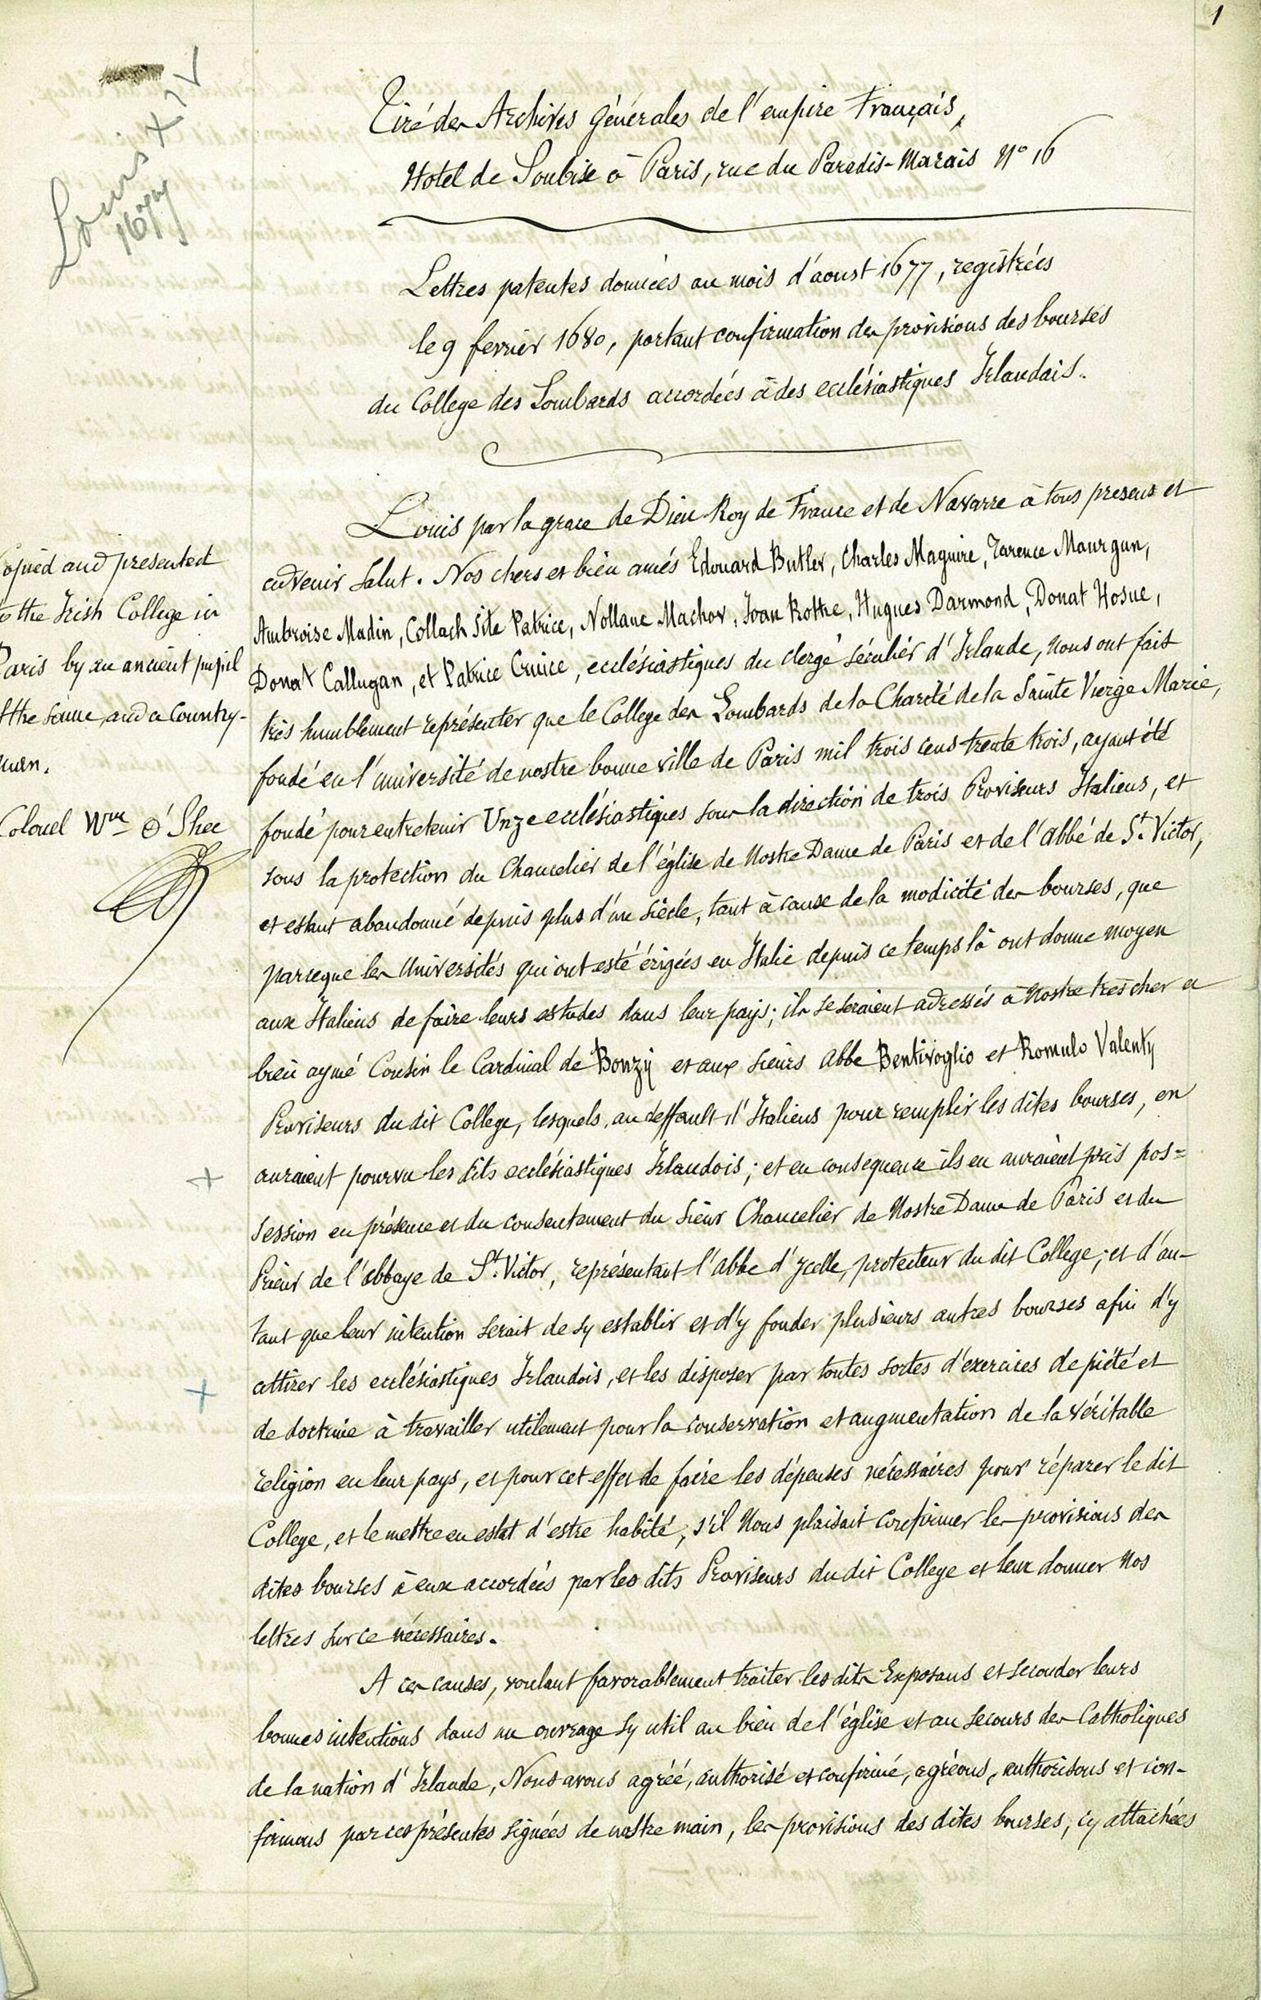 1
Louis XIV
1677
Tiré des Archives Générales de l'empire Français,
Hotel de Soubise à Paris, rue du Paradis-Marais N° 16
Lettres patentes données au mois d'aoust 1677, registrées
le 9 fevrier 1680, portant confirmation des provisions des bourses
du College des Lombards accordées à des ecclésiastiques Irlandais.
Louis par la grace de Dieu Roy de France et de Navarre à tous presens et
advenir Salut. Nos chers et bien amés Edouard Butler, Charles Maguire, Tarence Maurgun,
Ambroise Madin, Collach Site Patrice, Nollane Machov, Joan Rothe, Hugues Darmond, Donat Hosue,
Donat Callugan, et Patrice Cruice, ecclésiastiques du clergé séculier d'Irlande, nous ont fait
très humblement représenter que le College des Lombards de la Charité de la Sainte Vierge Marie,
fondé en l'université de nostre bonne ville de Paris mil trois cens trente trois, ayant été
fondé pour entretenir Unze ecclésiastiques sous la direction de trois Proviseurs Italiens, et
sous la protection du Chancelier de l'église de Nostre Dame de Paris et de l'abbé de St. Victor,
et estant abandonné depuis plus d'un siècle, tant à cause de la modicité des bourses, que
parceque les Universités qui ont esté érigées en Italie depuis ce temps là ont donné moyen
aux Italiens de faire leurs estudes dans leur pays; ils se seraient adressés à Nostre très cher et
bien aymé Cousin le Cardinal de Bonzy et aux sieurs abbé Bentivoglio et Romulo Valenty
Proviseurs du dit College, lesquels, au deffault d'Italiens pour remplir les dites bourses, en
auraient pourvu les dits ecclésiastiques Irlandois; et en consequence ils en auraient pris pos=
session en présence et du consentement du Sieur Chancelier de Nostre Dame de Paris et du
Prieur de l'abbaye de St. Victor, représentant l'abbé d'ycelle, protecteur du dit College; et d'au-
tant que leur intention serait de sy establir et d'y fonder plusieurs autres bourses afin d'y
attirer les ecclésiastiques Irlandois, et les disposer par toutes sortes d'exercices de piété et
de doctrine à travailler utilement pour la conservation et augmentation de la véritable
religion en leur pays, et pour cet effet de faire les dépenses nécessaires pour réparer le dit
College, et le mettre en estat d'estre habité, s'il Nous plaisait confirmer les provisions des
dites bourses à eux accordées par les dits Proviseurs du dit College et leur donner Nos
lettres sur ce nécessaires.
A ces causes, voulant favorablement traiter les dits Exposans et seconder leurs
bonnes intentions dans un ouvrage sy util au bien de l'église et au secours des Catholiques
de la nation d'Irlande, Nous avons agréé, authorisé et confirmé, agréons, authorisons et con-
firmons par ces présentes signées de nostre main, les provisions des dites bourses, cy attachées
opied and presented
to the Irish College in
Paris by an ancient pupil
f the same, and a Country-
man.
Colonel Wm O'Shee